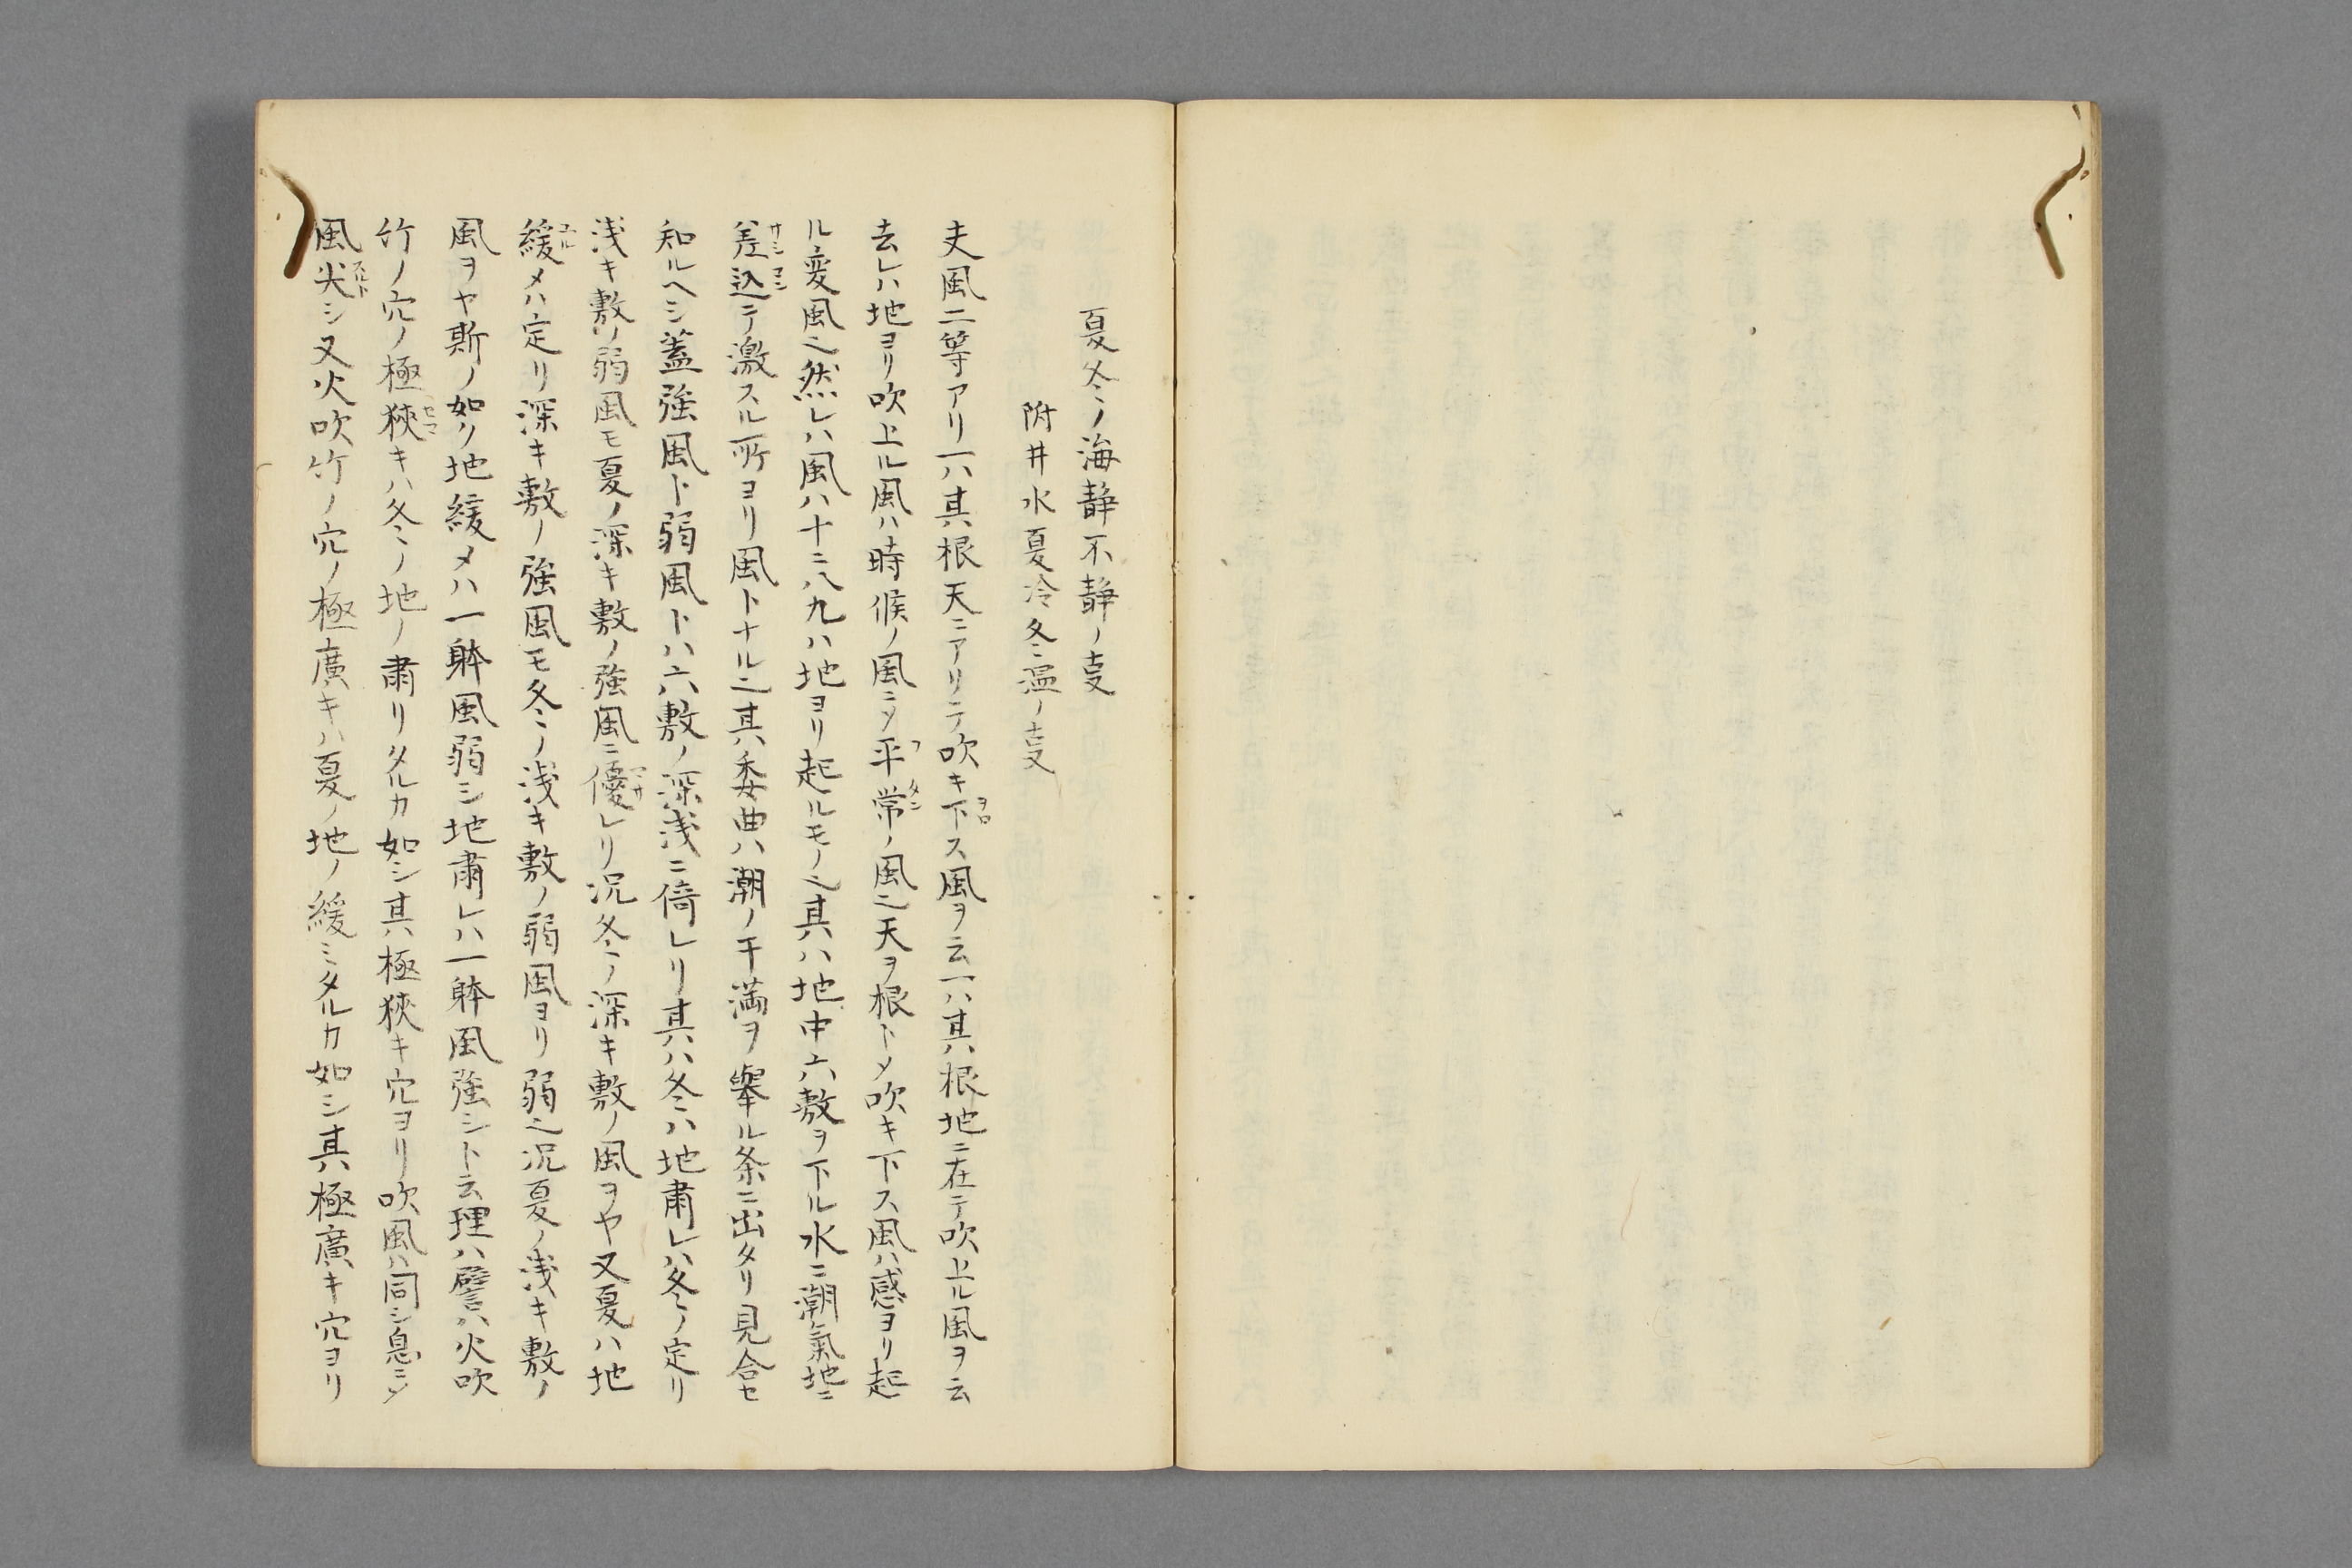 夏冬ノ海静不静ノ叓
附井水夏冷冬温ノ叓
夫風二等アリ一ハ其根天ニアリテ吹キ下ス風ヲ云一ハ其根地ニ在テ吹上ル風ヲ云
去レハ地ヨリ吹上ル風ハ時候ノ風ニメ平常ノ風也天ヲ根トメ吹キ下ス風ハ感ヨリ起
ル変風也然レハ風ハ十ニ八九ハ地ヨリ起ルモノ也其ハ地中六敷ヲ下ル水ニ潮氣地ニ
差込テ激スル所ヨリ風トナル也其委曲ハ潮ノ干満ヲ擧ル条ニ出タリ見合セ
知ルヘシ蓋強風ト弱風トハ六敷ノ深浅ニ倚レリ其ハ冬ハ地肅レハ冬ノ定リ
浅キ敷ノ弱風モ夏ノ深キ敷ノ強風ニ優レリ况冬ノ深キ敷ノ風ヲヤ又夏ハ地
緩メハ定リ深キ敷ノ強風モ冬ノ浅キ敷ノ弱風ヨリ弱也况夏ノ浅キ敷ノ
風ヲヤ斯ノ如ク地緩メハ一躰風弱シ地肅レハ一躰風強シト云理ハ譬ハ火吹
竹ノ穴ノ極狹キハ冬ノ地ノ肅リタルカ如シ其極狹キ穴ヨリ吹風ハ同シ息ニメ
風尖シ又火吹竹ノ穴ノ極廣キハ夏ノ地ノ緩ミタルカ如シ其極廣キ穴ヨリ